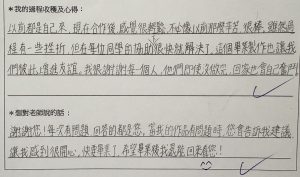 *我的過程收穫及心得:
以前都是自己來,現在合作後,感覺很輕鬆,不必像以前那麼辛苦,很棒,雖然過
程有一些挫折,但在每位同學的協助很快就解決了,這個畢業製作也讓我
們彼此增進友誼。我很謝謝每一個人,他們即使沒做完,回家也會自己奮鬥
*想對老師說的話:
謝謝您!每次有問題,回答的都是您,當我的作品有問題時,您會告訴我建議
讓我感到很開心,快畢業了,希望畢業後我還能回來看您!!